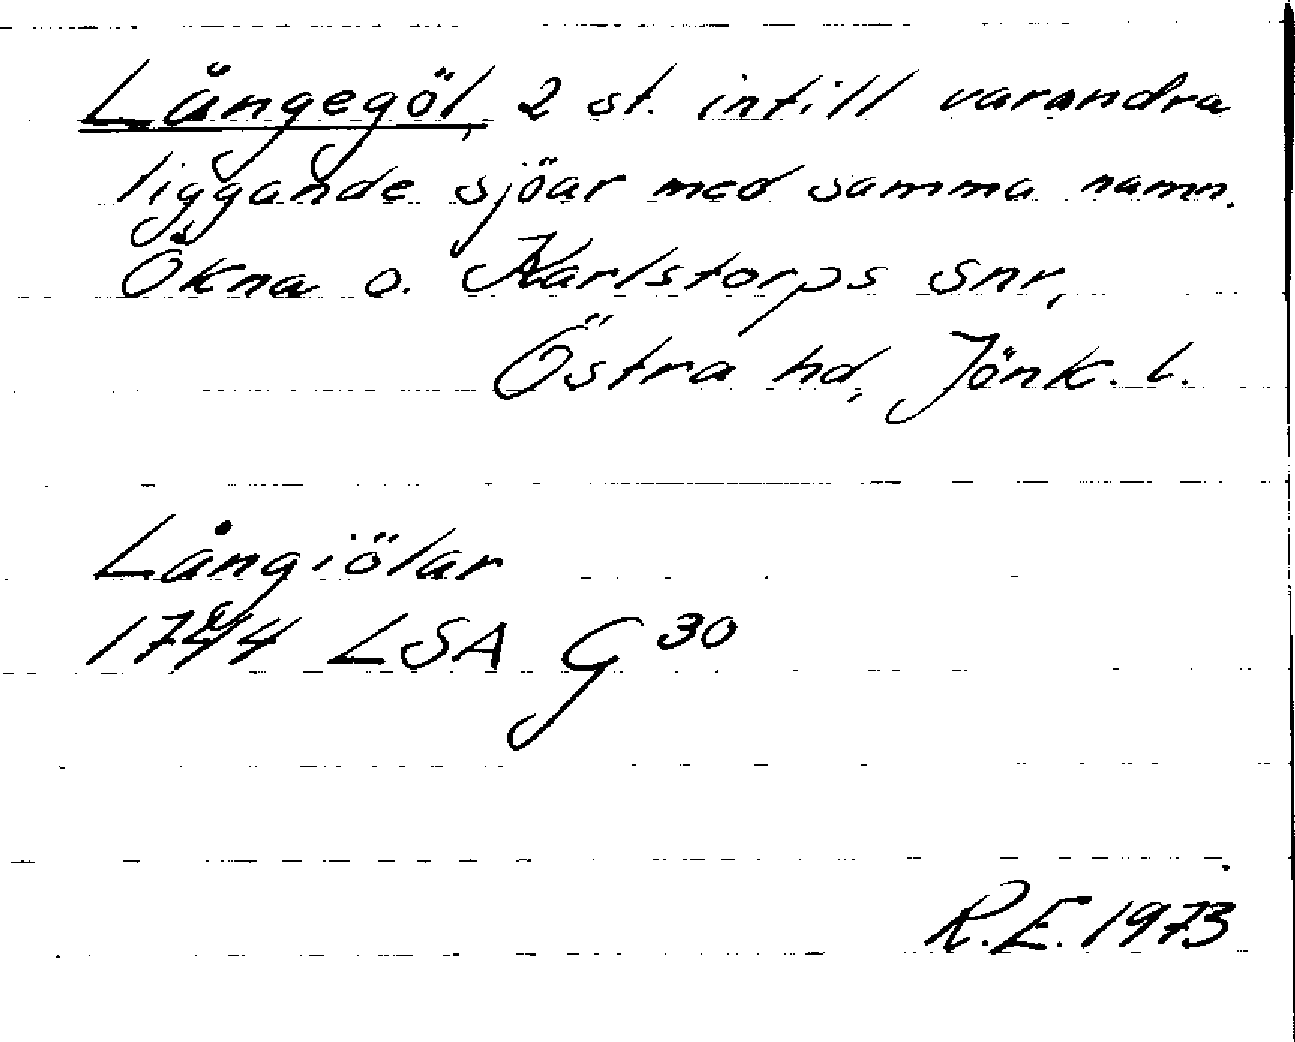 Långegöl, 2 st. intill varandra
liggande sjöar med samma namn.
Ökna o. Karlstorps snr,
Östra hd, Jönk. l.
Långiölar
1744 LSA G 30
R.E. 1973